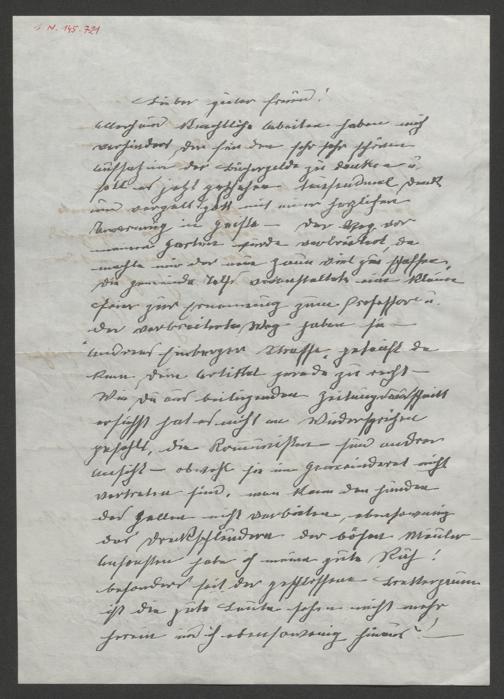 I.N. 145.721
Lieber guter Freund!
Allerhand Künstliche Arbeiten haben mich
verhindert Dir für den sehr sehr schönen
Aufsatz in der zu danken u.
soll es jetzt geschehen tausendmal Dank
und vergelt's Gott mit einer herzlichen
Umarmung im Geiste — Der Weg vor
meinem Garten wurde verbreitert, da
machte mir der neue Zaun viel zu schaffen,
die Gemeinde Telfs veranstaltete eine kleine
Feier zur Ernennung zum Professor u.
der verbreiterte Weg haben sie —
"Andreas Einberger Strasse" getauft da
kam Dein Artikel gerade zu recht —
Wie Du aus beiliegenden Zeitungsausschnitt
ersiehst hat es nicht an Widersprüchen
gefehlt, die Kommunisten — sind anderer
Ansicht — obwohl sie im Gemeinderat nicht
vertreten sind, man kann den Hunden
das Bellen nicht verbieten, ebensowenig
das Dreckschleudern der bösen Mäuler —
Ansonsten habe ich meine gute Ruh!
besonders seit der geschlossene Bretterzaun
ist die gute Leute sehen nicht mehr
herein und ich ebensowenig hinaus! —